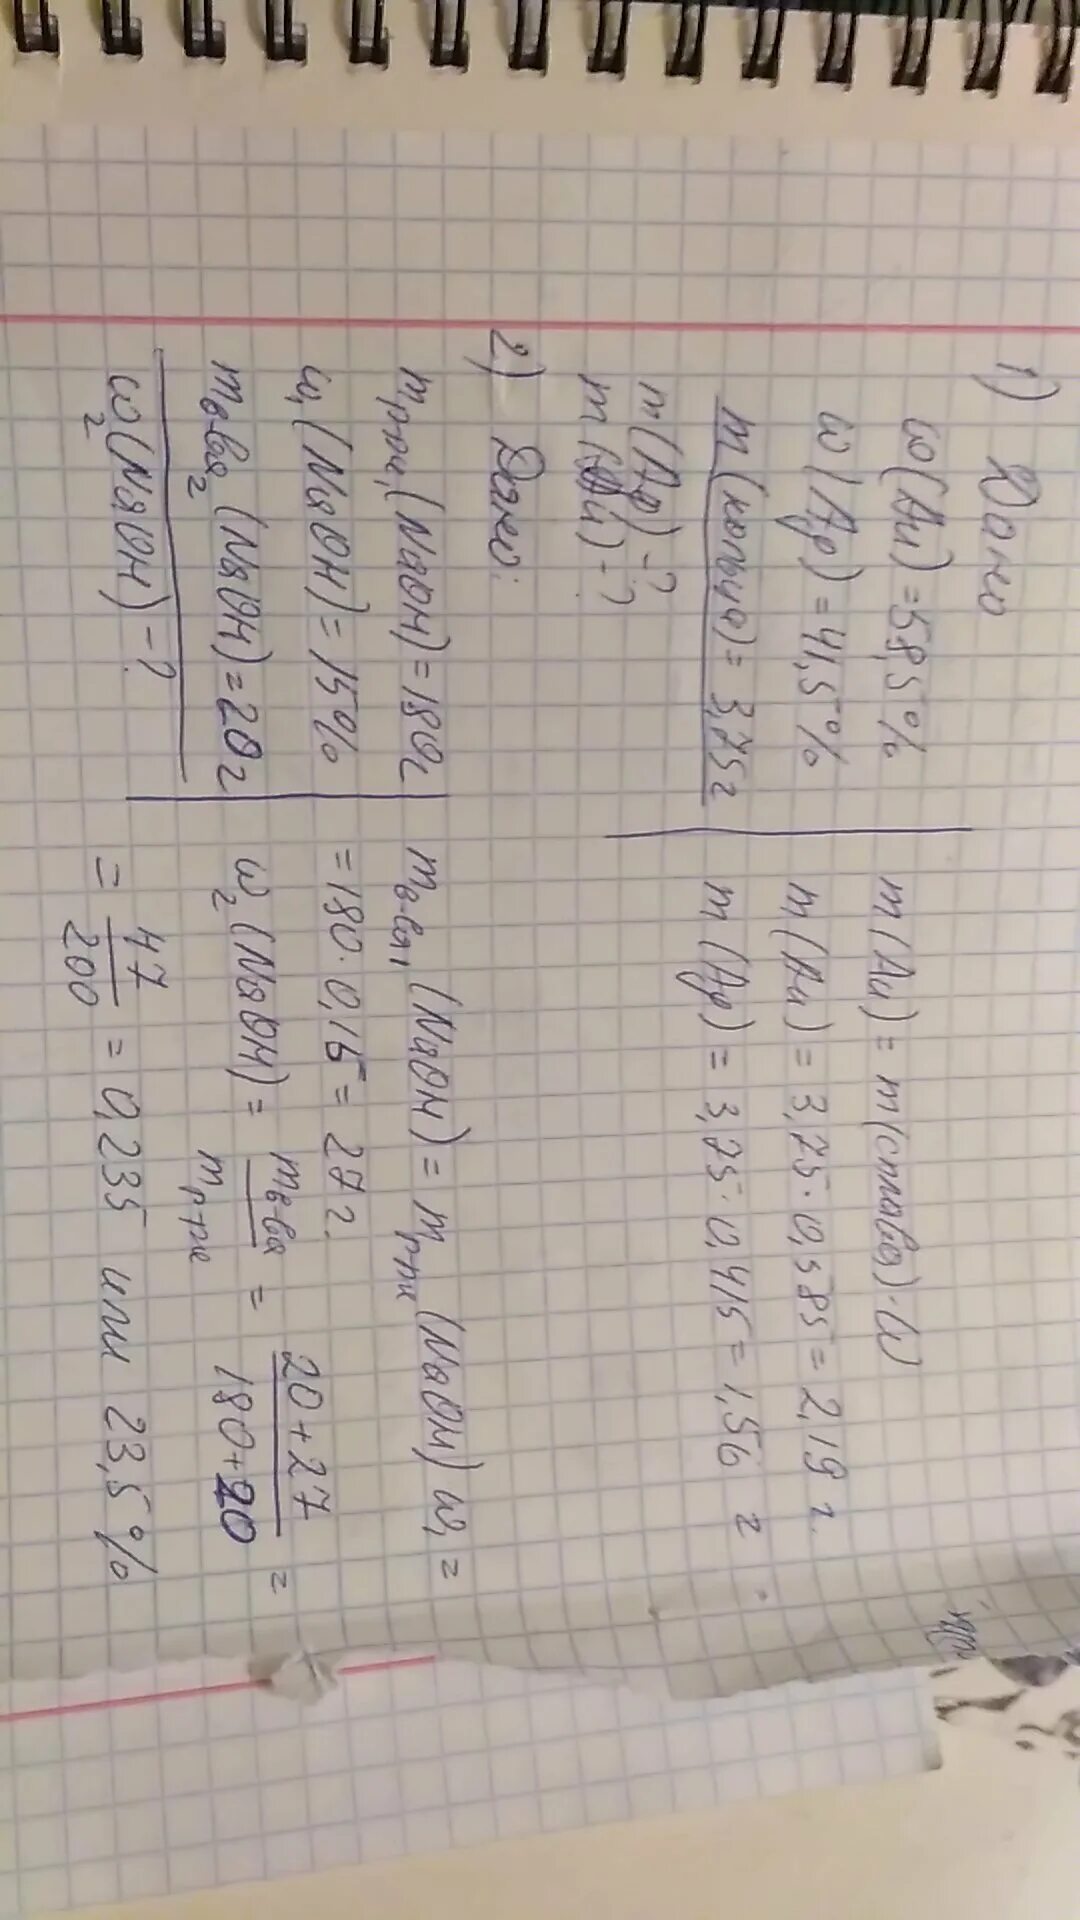 1) Дано
ω(Au) = 58,5%
ω(Ag) = 41,5%
m(кольца) = 3,75г
m(Ag) - ?
m(Au) - ?
m(Au) = m(сплава)·ω
m(Au) = 3,75·0,585 = 2,19 г.
m(Ag) = 3,75·0,415 = 1,56 г
2) Дано:
mр-ра₁(NaOH) = 180г
ω₁(NaOH) = 15%
mв-ва₂(NaOH) = 20г
ω₂(NaOH) - ?
mв-ва₁(NaOH) = mр-ра(NaOH) ω₁ =
= 180·0,15 = 27г.
ω₂(NaOH) = mв-ва / mр-ра = 20+27 / 180+20 =
= 47/200 = 0,235 или 23,5%